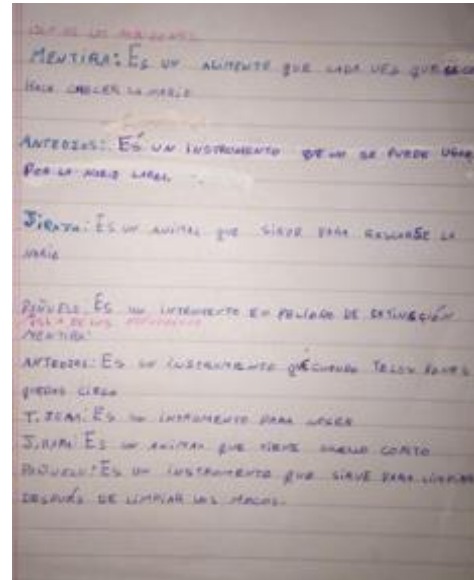 MENTIRA: ES UN ALIMENTO QUE CADA VEZ QUE
HACE CRECER LA NARIZ
ANTEOJOS: ES UN INSTRUMENTO QUE NO SE PUEDE USAR
POR LA NARIZ LARGA.
JIRAFA: ES UN ANIMAL QUE SIRVE PARA RASCARSE LA
NARIZ
PAÑUELO ES UN INTRUMENTO EN PELIGRO DE EXTINCIÓN
MENTIRA:
ANTEOJOS: ES UN INSTRUMENTO QUE CUANDO TE LOS PONES
QUEDAS CIEGO
ES UN INTRUMENTO PARA
ES UN ANIMAL QUE TIENE CUELLO CORTO
PAÑUELO: ES UN INSTRUMENTO QUE SIRVE PARA LIMPIAR
DESPUÉS DE LIMPIAR LOS MOCOS.